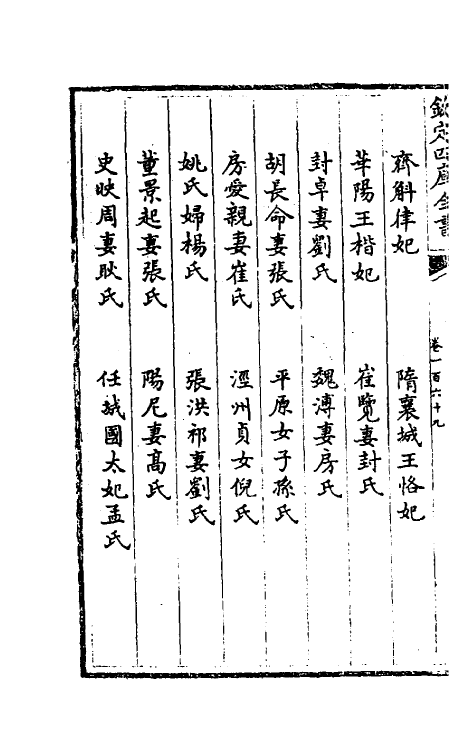 欽定四庫全書
卷一百六十九
齊斛律妃　隋襄城王恪妃
華陽王楷妃　崔覽妻封氏
封卓妻劉氏　魏溥妻房氏
胡長命妻張氏　平原女子孫氏
房愛親妻崔氏　涇州貞女倪氏
姚氏婦楊氏　張洪祁妻劉氏
董景起妻張氏　陽尼妻髙氏
史映周妻耿氏　任城國太妃孟氏